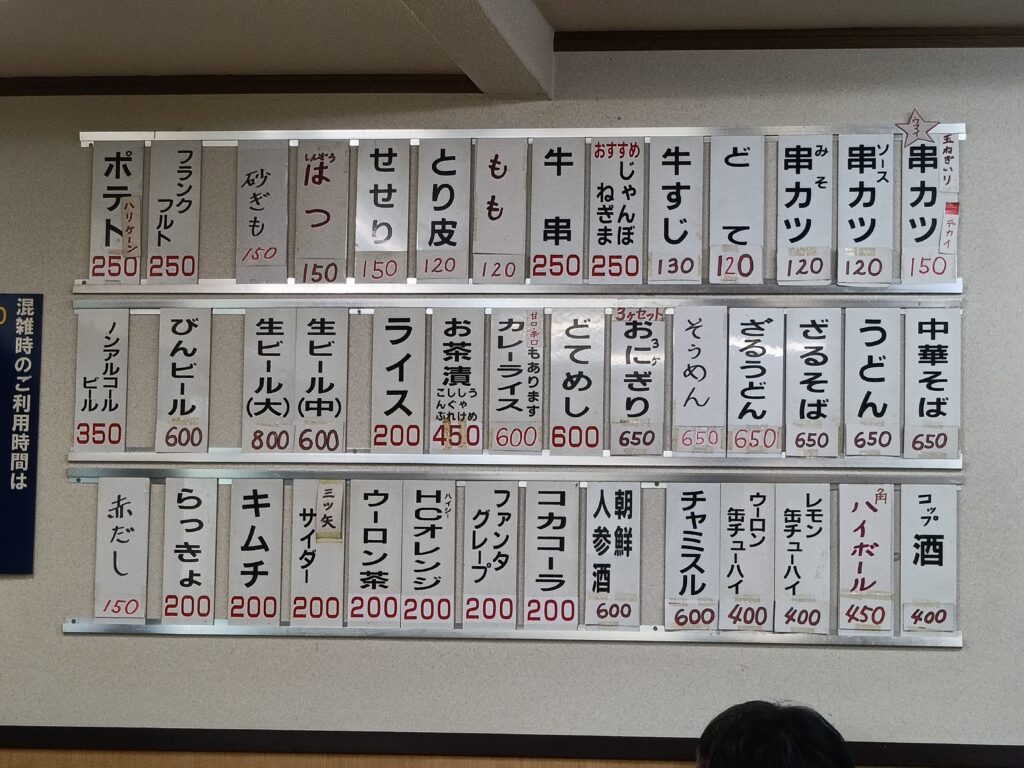 ワァイ
串カツ
玉ねぎいり
デカイ
150
ソース
串カツ
120
みそ
串カツ
120
どて
120
牛すじ
130
おすすめ
じゃんぼ
ねぎま
250
牛串
250
もも
120
とり皮
120
せせり
150
しんぞう
はつ
150
砂ぎも
150
フランク
フルト
250
ポテト
ハリケーン
250
中華そば
650
うどん
650
ざるそば
650
ざるうどん
650
そうめん
650
3ヶセット
おにぎり
3ヶ
650
どてめし
600
甘口・辛口もあります
カレーライス
600
お茶漬
こんぶ
しぐれ
しゃけ
うめ
450
ライス
200
生ビール(中)
600
生ビール(大)
800
びんビール
600
ノンアルコール
ビール
350
コップ
酒
400
角
ハイボール
450
レモン
缶チューハイ
400
ウーロン
缶チューハイ
400
チャミスル
600
朝鮮
人参酒
600
コカコーラ
200
ファンタ
グレープ
200
ハイシー
HCオレンジ
200
ウーロン茶
200
三ツ矢
サイダー
200
キムチ
200
らっきょ
200
赤だし
150
混雑時のご利用時間は